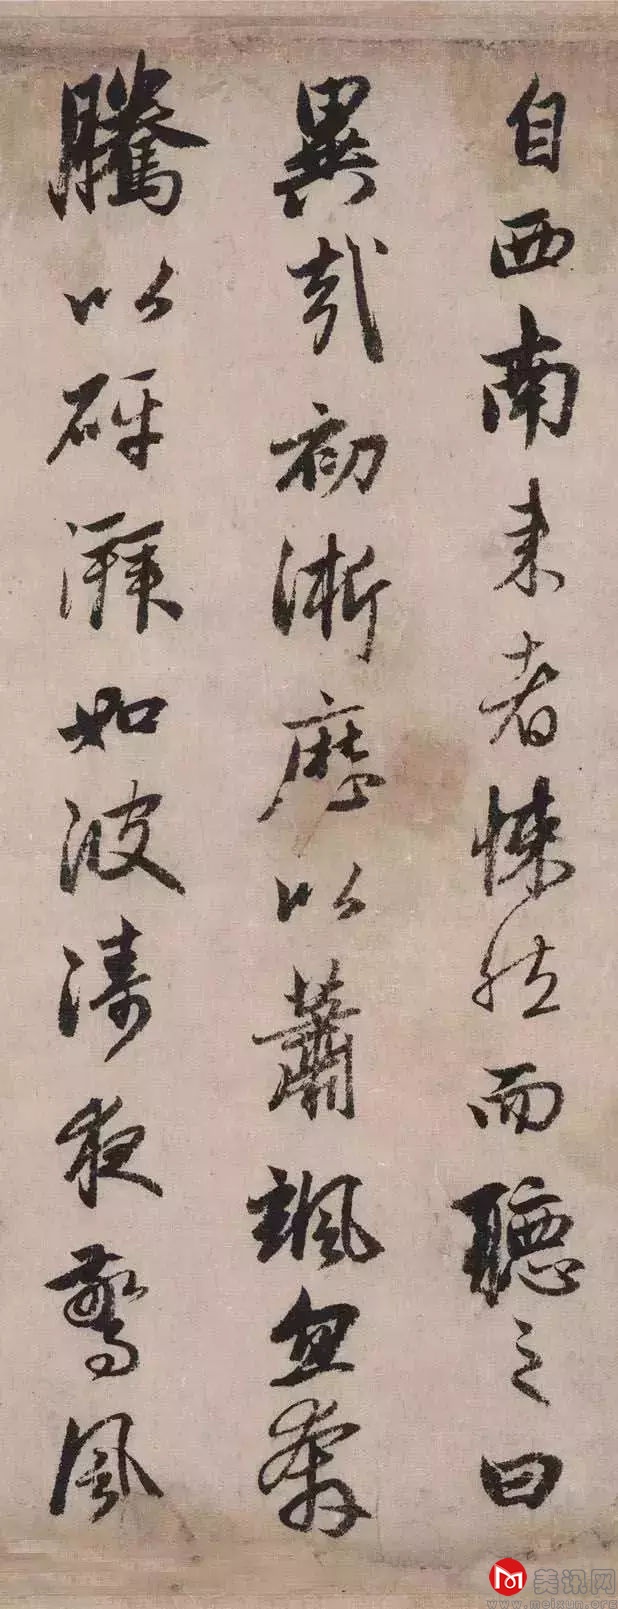 自西南来者悚然而聽之曰
異哉初淅歷以蕭颯忽奔
騰以砰湃如波濤夜驚風
美讯网
www.meixun.org